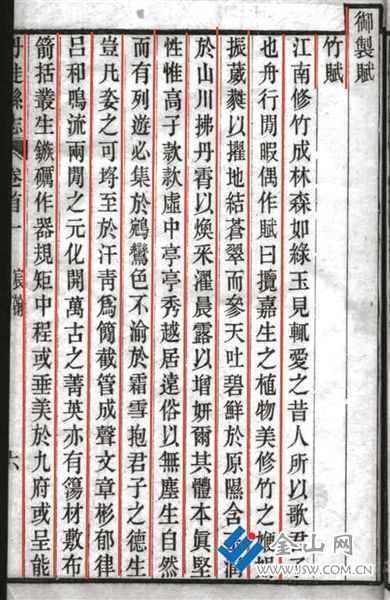 御製賦
竹賦
江南修竹成林森如綠玉見輒愛之昔人所以歌君子
也舟行閒暇偶作賦曰攬嘉生之植物美修竹之
振葳蕤以擢地結蒼翠而參天吐碧鮮於原隰含
於山川拂丹霄以煥采濯晨露以增妍爾其體本眞堅
性惟高子款款虛中亭亭秀越居遠俗以無塵生自然
而有列遊必集於鵷鸞色不渝於霜雪抱君子之德生
豈凡卉之可埒至於汗青爲簡截管成聲文章彬郁律
呂和鳴流兩閒之元化開萬古之菁英亦有簜材敷布
箭括叢生鏃礪作器規矩中程或垂美於九府或呈能
丹徒縣志 卷首一 宸翰 六
金山网
WWW.JSW.COM.CN